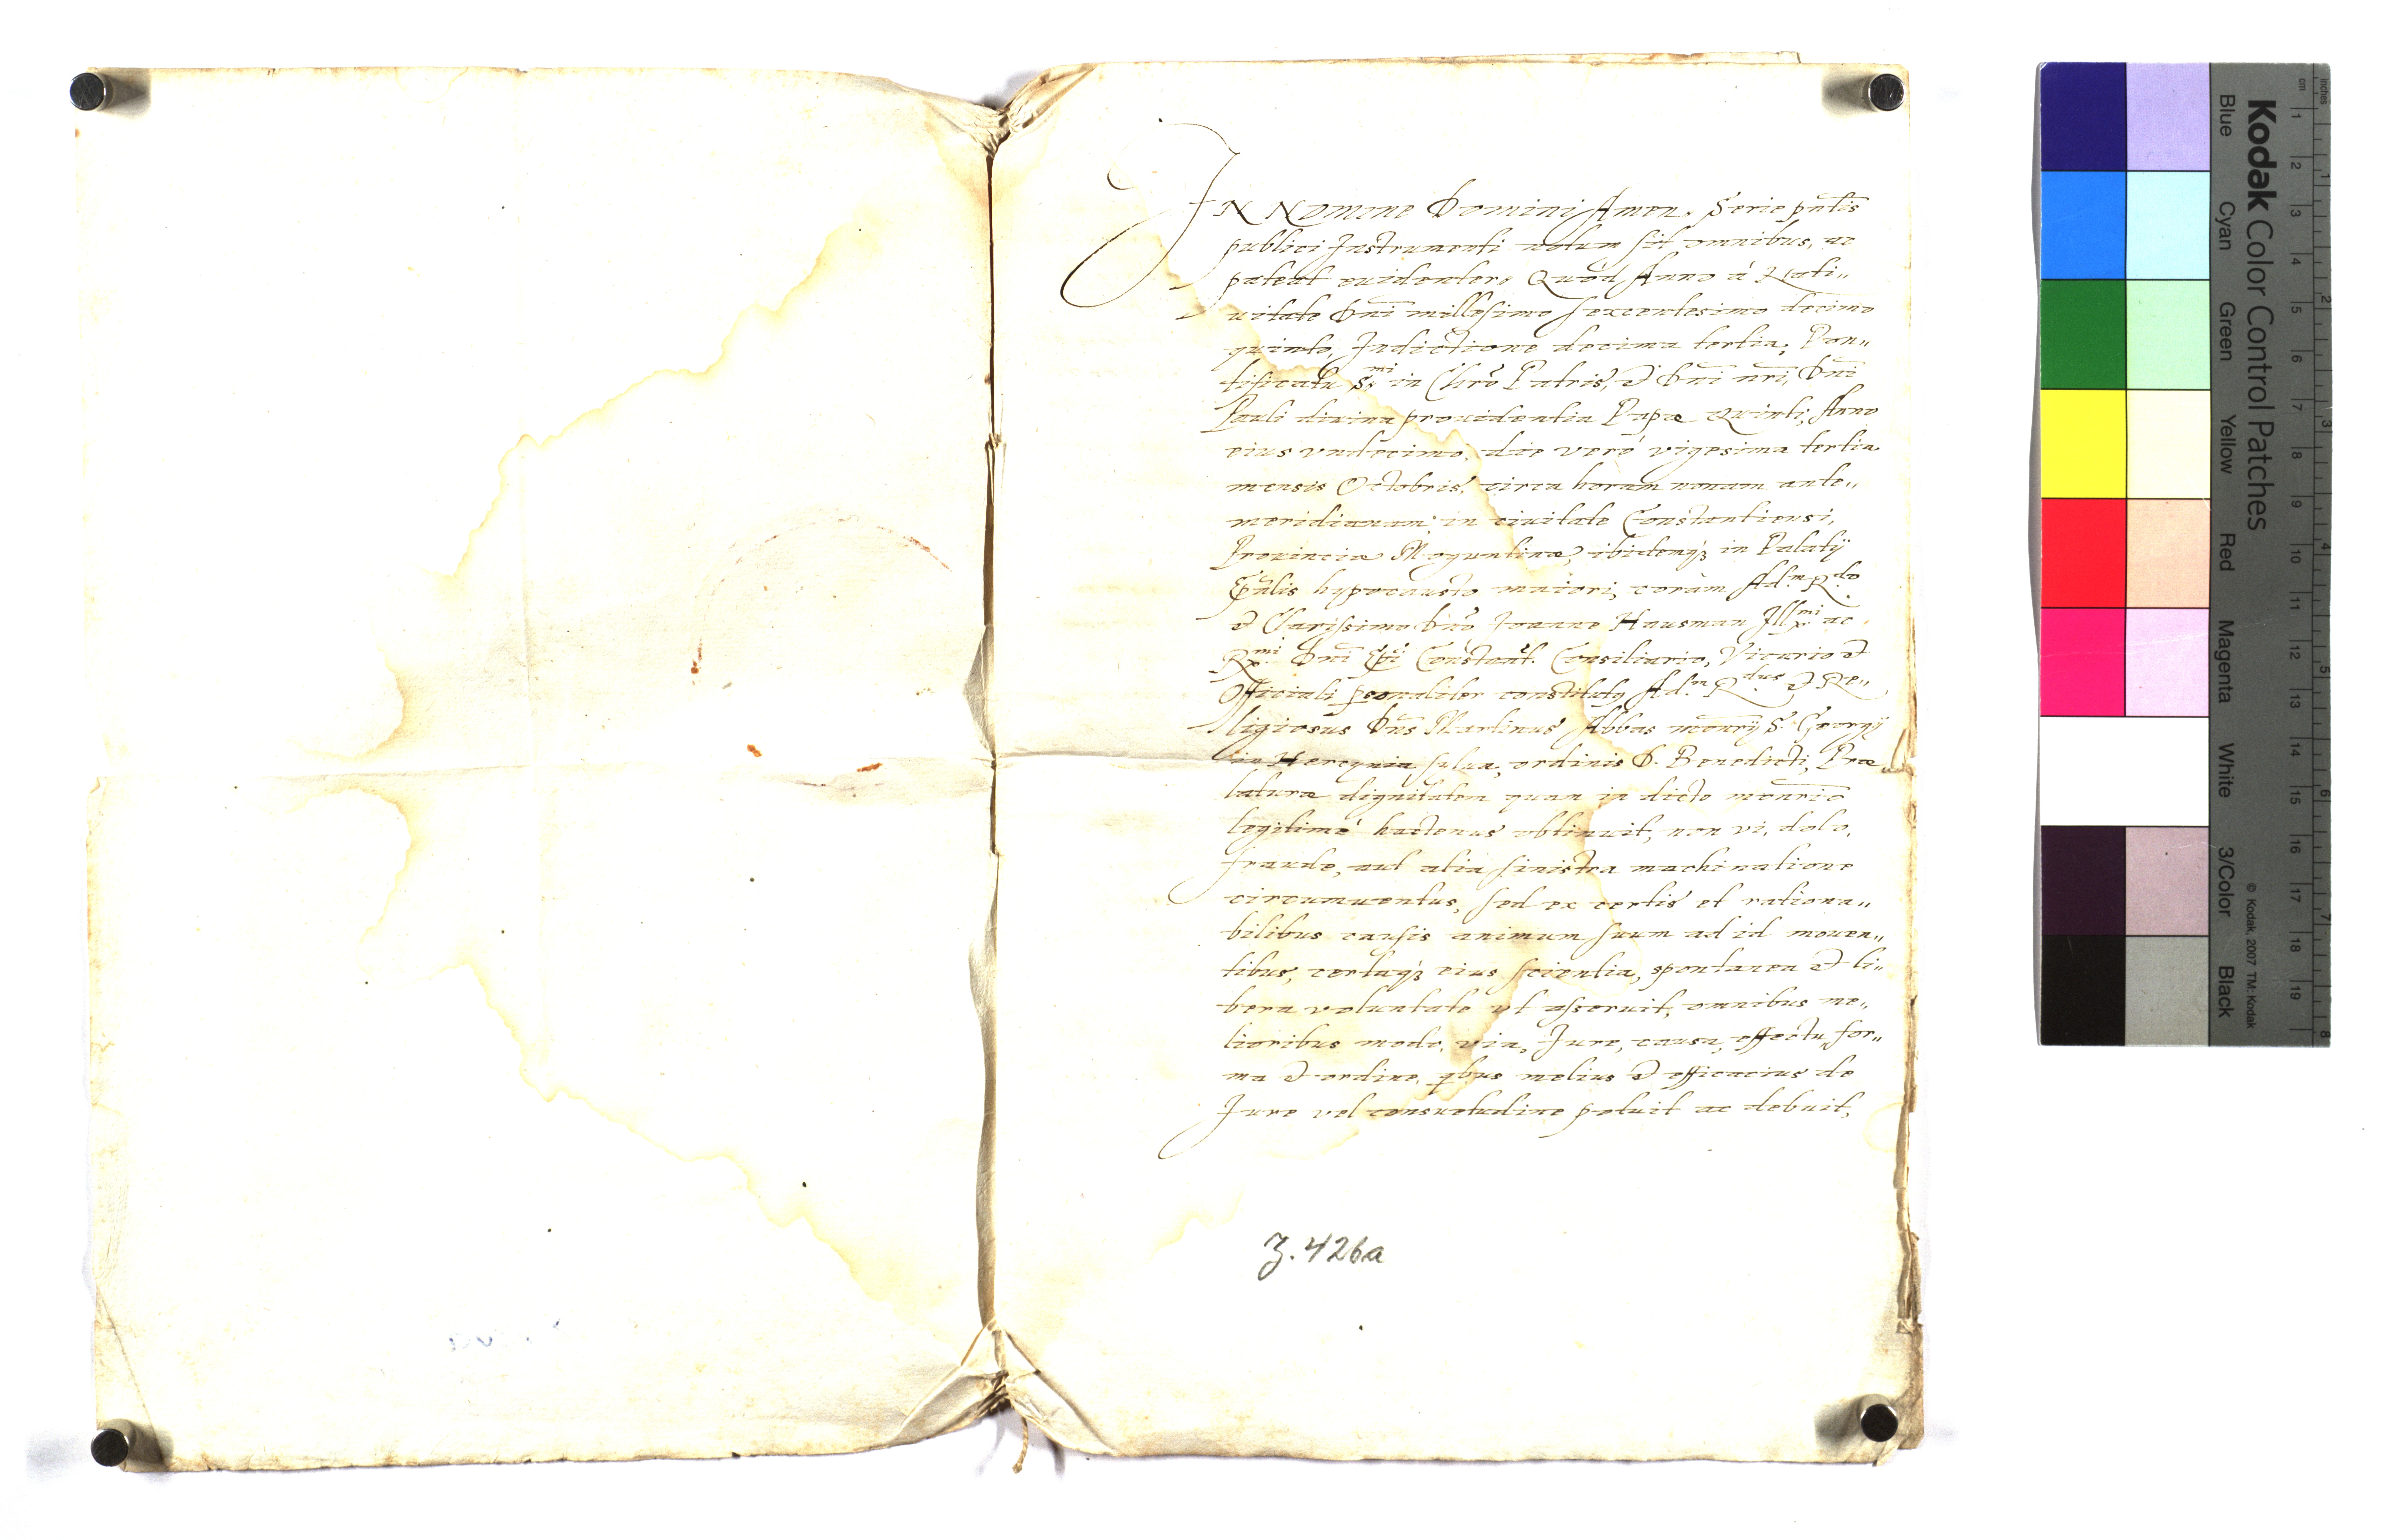 IN Nomine Domini Amen. Serie pn̄tis
publici Instrumenti notum sit omnibus, ac
pateat euidenter, Quòd Anno à Nati„
uitate Dn̄i millesimo sexcentesimo decimo
quinto, Indictione decima tertia, Pon„
tificatu S.mi in Chr̄o Patris, & Dn̄i nr̄i, Dn̄i
Pauli diuina prouidentia Papæ Quinti, Anno
eius vndecimo, die verò vigesima tertia
mensis Octobris, circa horam nonam ante„
meridianam, in ciuitate Constantiensi,
Prouinciæ Moguntinæ, ibidemq₃ in Palatij
Ep̄alis hypocausto maiori, coràm Ad.m R.do
& Clarissimo Dn̄o Ioanne Hausman Ill.mi ac
R.mi Dn̄i Ep̄i Constant. Consiliario, Vicario &
Officiali personaliter constitutus Ad.m R.dus & Re„
ligiosus Dn̄s Martinus Abbas mon̄rij S. Georgij
in Hercynia sylua, ordinis D. Benedicti, Præ
laturæ dignitatem quam in dicto mon̄rio
legitimè hactenus obtinuit, non vi, dolo,
fraude, aut alia sinistra machinatione
circumuentus, sed ex certis et rationa„
bilibus causis animum suum ad id mouen„
tibus, certaq₃ eius scientia, spontanea & li„
bera voluntate vt asseruit, omnibus me„
lioribus modo, via, Iure, causa, effectu, for„
ma & ordine, qbus melius & efficacius de
Iure vel consuetudine potuit ac debuit,
Z. 426a
Kodak Color Control Patches
Blue Cyan Green Yellow Red Magenta White 3/Color Black
© Kodak, 2007 TM: Kodak
inches 1 2 3 4 5 6 7 8
cm 1 2 3 4 5 6 7 8 9 10 11 12 13 14 15 16 17 18 19